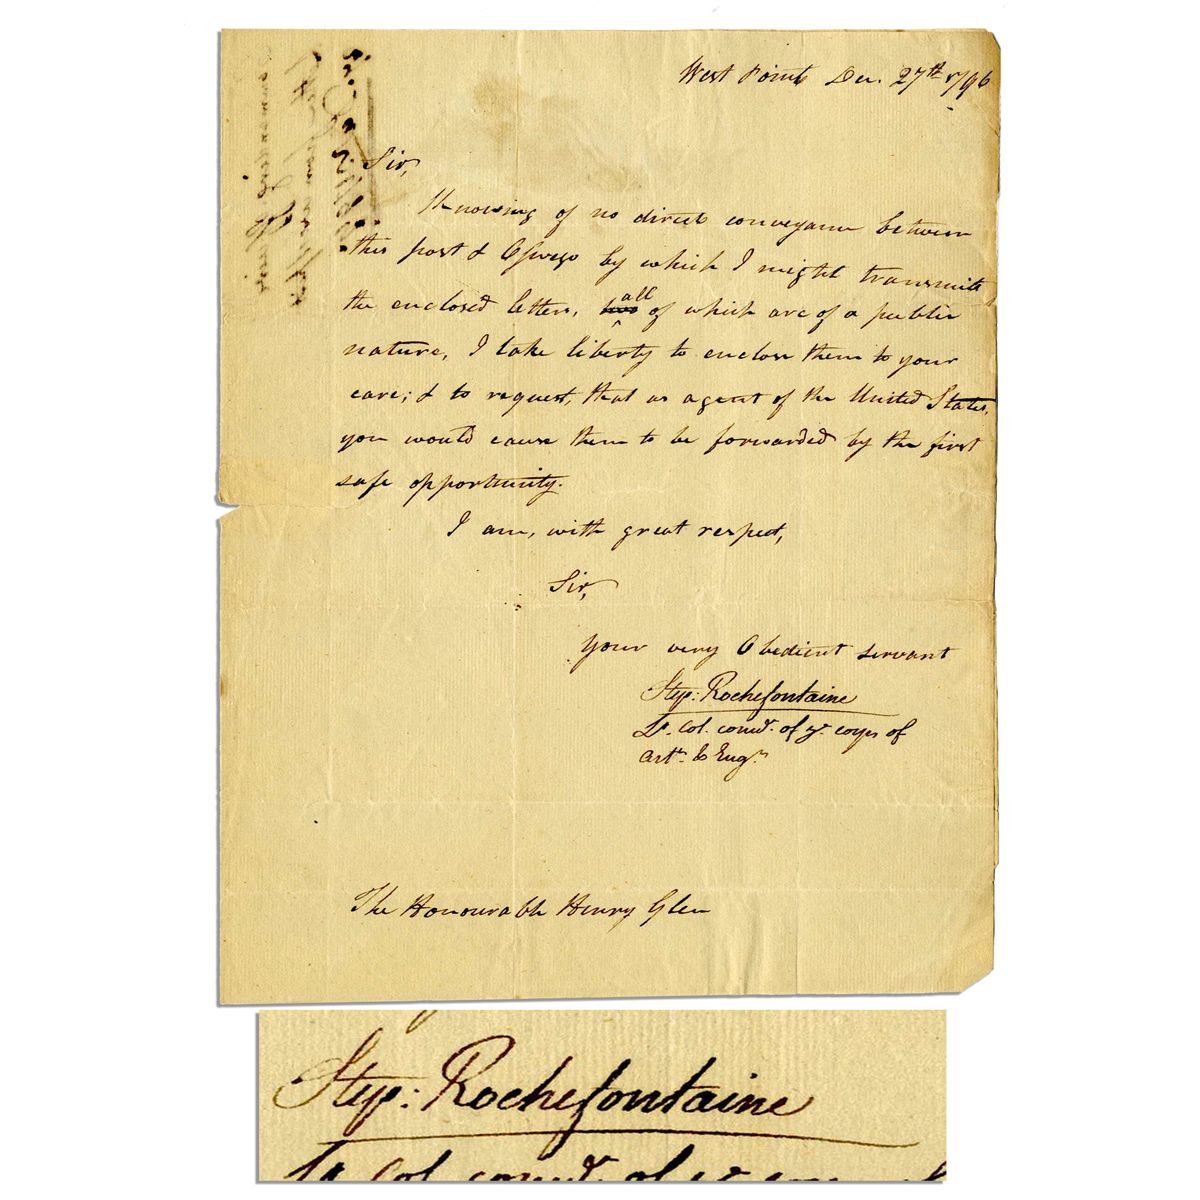 West Point Dec. 27th 1796
Sir,
Knowing of no direct conveyance between
this post & Oswego by which I might transmit
the enclosed letters, two all of which are of a public
nature, I take liberty to enclose them to your
care; & to request, that as agent of the United States,
you would cause them to be forwarded by the first
safe opportunity.
I am, with great respect,
Sir,
Your very Obedient servant
Step: Rochefontaine
Lt. Col. comdt. of ye. corps of
Arty. & Engrs.
The Honourable Henry Glen
Step: Rochefontaine
Lt. Col. comdt. of ye. corps of